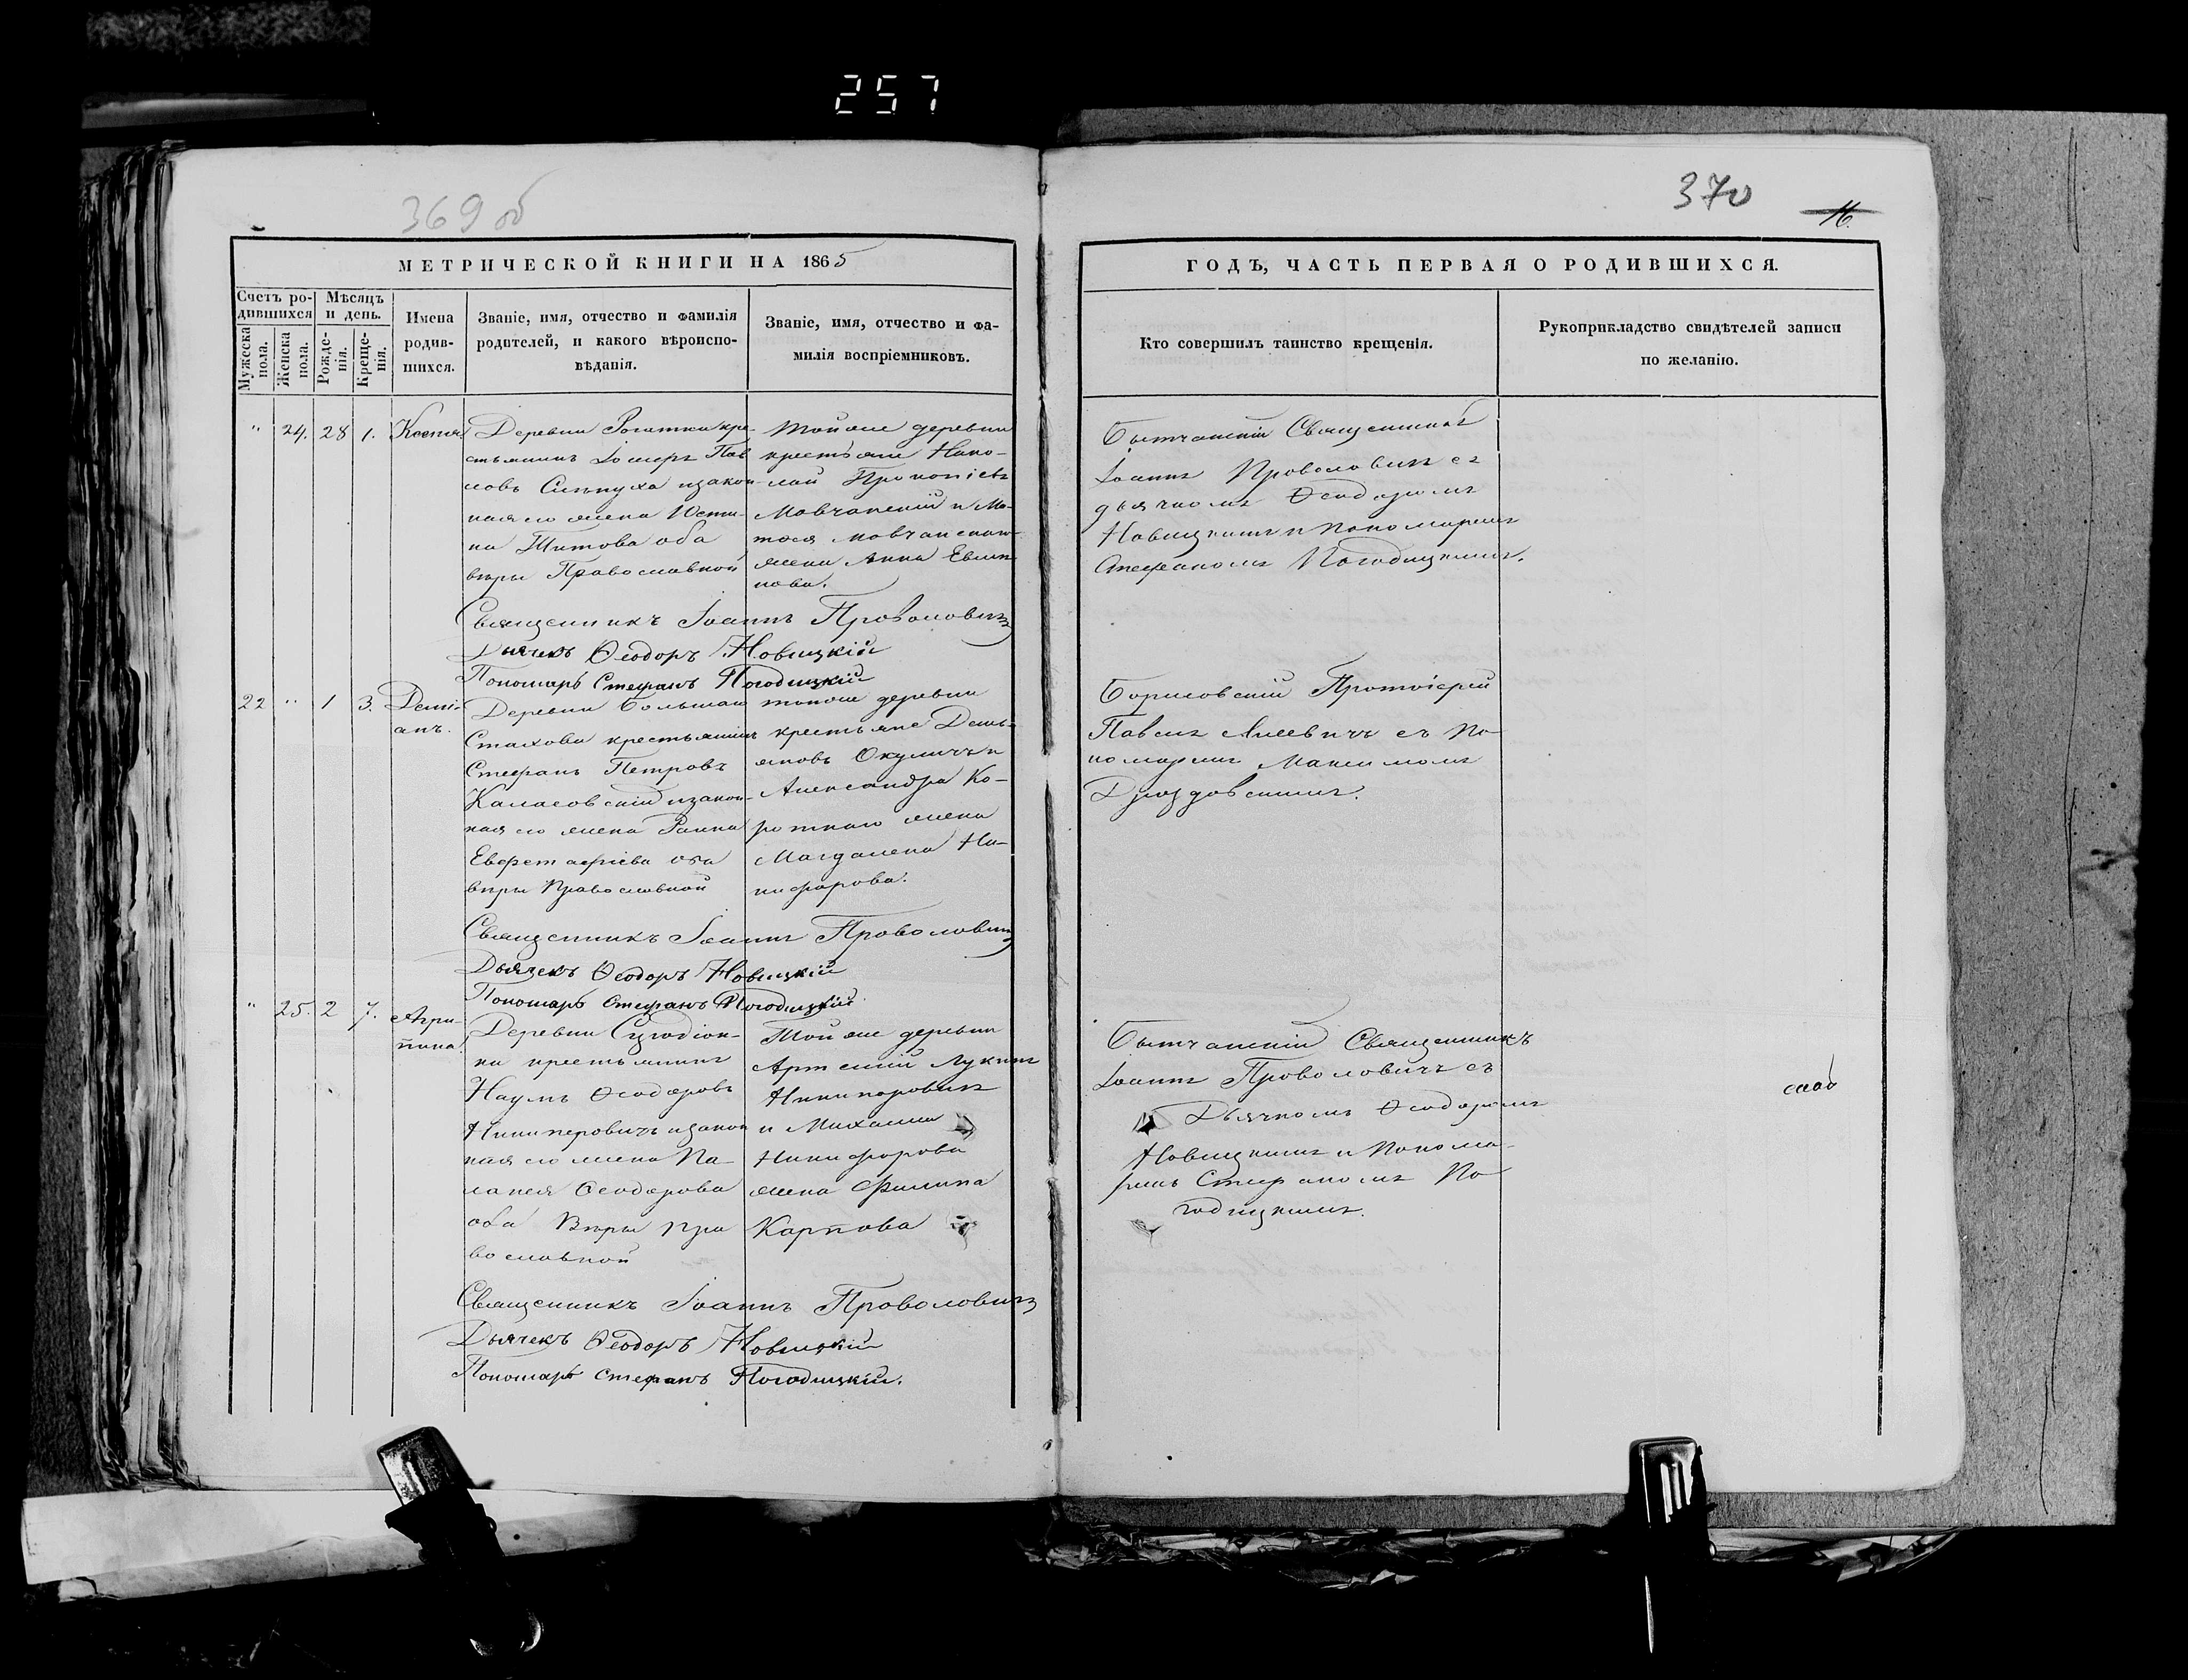 257
369 об
МЕТРИЧЕСКОЙ КНИГИ НА 1865
Счетъ родившихся
Мѣсяцъ и день.
Мужеска пола.
Женска пола.
Рожденія.
Крещенія.
Имена родившихся.
Званіе, имя, отчество и фамилія
родителей, и какого вѣроиспо-
вѣданія.
Званіе, имя, отчество и фа-
милія воспріемниковъ.
" 24. 28 1. Ксенія
Деревни Рогатки кре-
стьянинъ Іосифъ Пав
ловъ и закон
ная его жена Юсти-
на Титова оба
вѣры Православной
Той же деревни
крестьяне Нико-
лай Прокопіевъ
Мовчанскій и Ма-
тѳея Мовчанскаго
жена Анна
Священникъ Іоаннъ Проволовичъ
Дьячекъ Ѳеодоръ Новицкій
Пономарь Стефанъ Погодицкій
22 " 1 3. Демі-
анъ.
Деревни Большаго
Стахова крестьянинъ
Стефанъ Петровъ
Каласовскій и закон-
ная его жена
оба
вѣры Православной
той же деревни
крестьяне Демь-
яновъ Окуличъ и
Александра Ко-
роткаго жена
Магдалена Ни-
кифорова.
Священникъ Іоаннъ Проволовичъ
Дьячекъ Ѳеодоръ Новицкій
Пономарь Стефанъ Погодицкій
" 25. 2 7. Агри-
пина
Деревни
крестьянинъ
Наумъ Ѳеодоровъ
Никиперовичъ и закон
ная его жена Па-
лагея Ѳеодорова
оба Вѣры Пра
вославной
Той же деревни
Артемій Лукинъ
Никипоровичъ
и Михаила
Никифорова
жена Филипа
Карпова
Священникъ Іоаннъ Проволовичъ
Дьячекъ Ѳеодоръ Новицкій
Пономарь Стефанъ Погодицкій.
370
16
ГОДЪ, ЧАСТЬ ПЕРВАЯ О РОДИВШИХСЯ.
Кто совершилъ таинство крещенія.
Рукоприкладство свидѣтелей записи
по желанію.
Бытчанскій Священникъ
Іоаннъ Проволовичъ съ
дьячкомъ Ѳеодоромъ
Новицкимъ и пономаремъ
Стефаномъ Погодицкимъ.
Борисовскій Протоіерей
Павелъ съ По
номаремъ Максимомъ
Дроздовскимъ.
Бытчанскій Священникъ
Іоаннъ Проволовичъ съ
Дьячкомъ Ѳеодоромъ
Новицкимъ и Понома-
ремъ Стефаномъ По
годицкимъ.